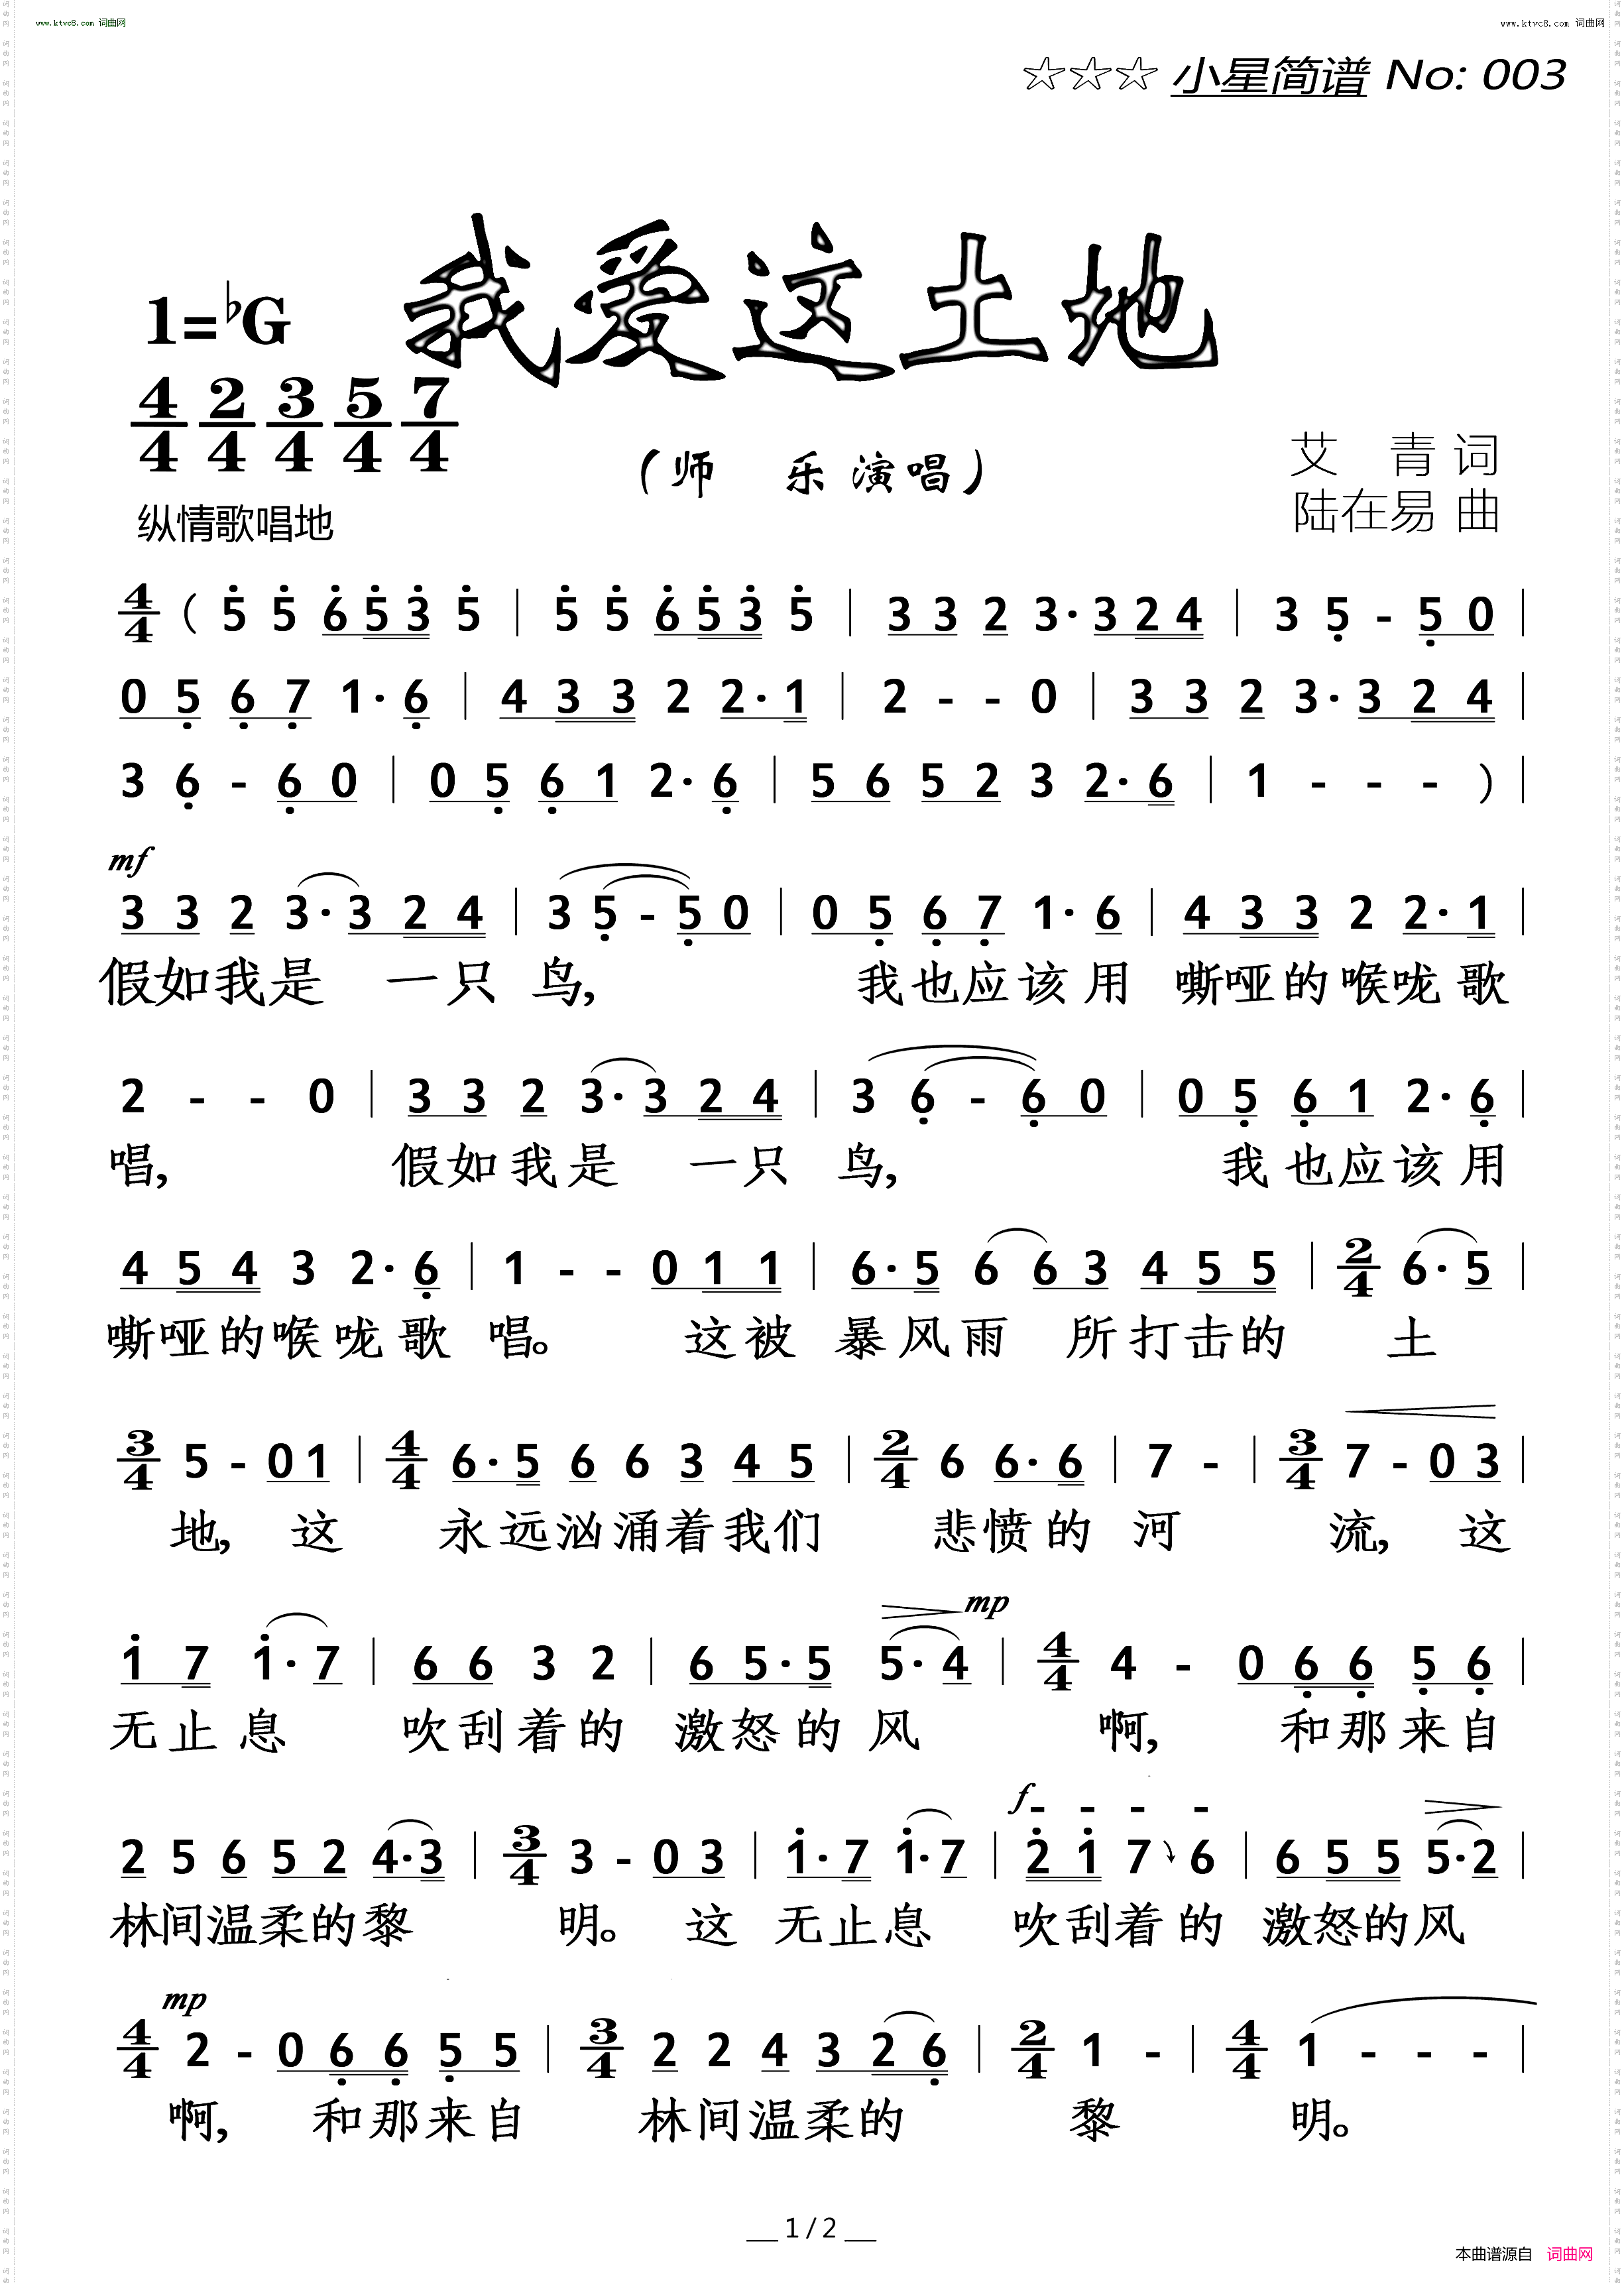 www.ktvc8.com 词曲网
www.ktvc8.com 词曲网
☆☆☆ 小星简谱 No: 003
我爱这土地
1=♭G
4/4 2/4 3/4 5/4 7/4
(师 乐演唱)
艾 青 词
陆在易 曲
纵情歌唱地
4/4 ( 5 5 6 5 3 5 | 5 5 6 5 3 5 | 3 3 2 3· 3 2 4 | 3 5 - 5 0 |
0 5 6 7 1· 6 | 4 3 3 2 2· 1 | 2 - - 0 | 3 3 2 3· 3 2 4 |
3 6 - 6 0 | 0 5 6 1 2· 6 | 5 6 5 2 3 2· 6 | 1 - - - ) |
mf
3 3 2 3· 3 2 4 | 3 5 - 5 0 | 0 5 6 7 1· 6 | 4 3 3 2 2· 1 |
假如我是 一只 鸟, 我也应该用 嘶哑的喉咙歌
2 - - 0 | 3 3 2 3· 3 2 4 | 3 6 - 6 0 | 0 5 6 1 2· 6 |
唱, 假如我是 一只 鸟, 我也应该用
4 5 4 3 2· 6 | 1 - - 0 1 1 | 6· 5 6 6 3 4 5 5 | 2/4 6· 5 |
嘶哑的喉咙歌 唱。 这被 暴风雨 所打击的 土
3/4 5 - 0 1 | 4/4 6· 5 6 6 3 4 5 | 2/4 6 6· 6 | 7 - | 3/4 7 - 0 3 |
地, 这 永远汹涌着我们 悲愤的 河 流, 这
mp
1 7 1· 7 | 6 6 3 2 | 6 5· 5 5· 4 | 4/4 4 - 0 6 6 5 6 |
无止息 吹刮着的 激怒的 风 啊, 和那来自
f - - - -
2 5 6 5 2 4· 3 | 3/4 3 - 0 3 | 1· 7 1· 7 | 2 1 7 6 | 6 5 5 5· 2 |
林间温柔的黎 明。 这 无止息 吹刮着的 激怒的风
mp
4/4 2 - 0 6 6 5 5 | 3/4 2 2 4 3 2 6 | 2/4 1 - | 4/4 1 - - - |
啊, 和那来自 林间温柔的 黎 明。
1 / 2
本曲谱源自 词曲网